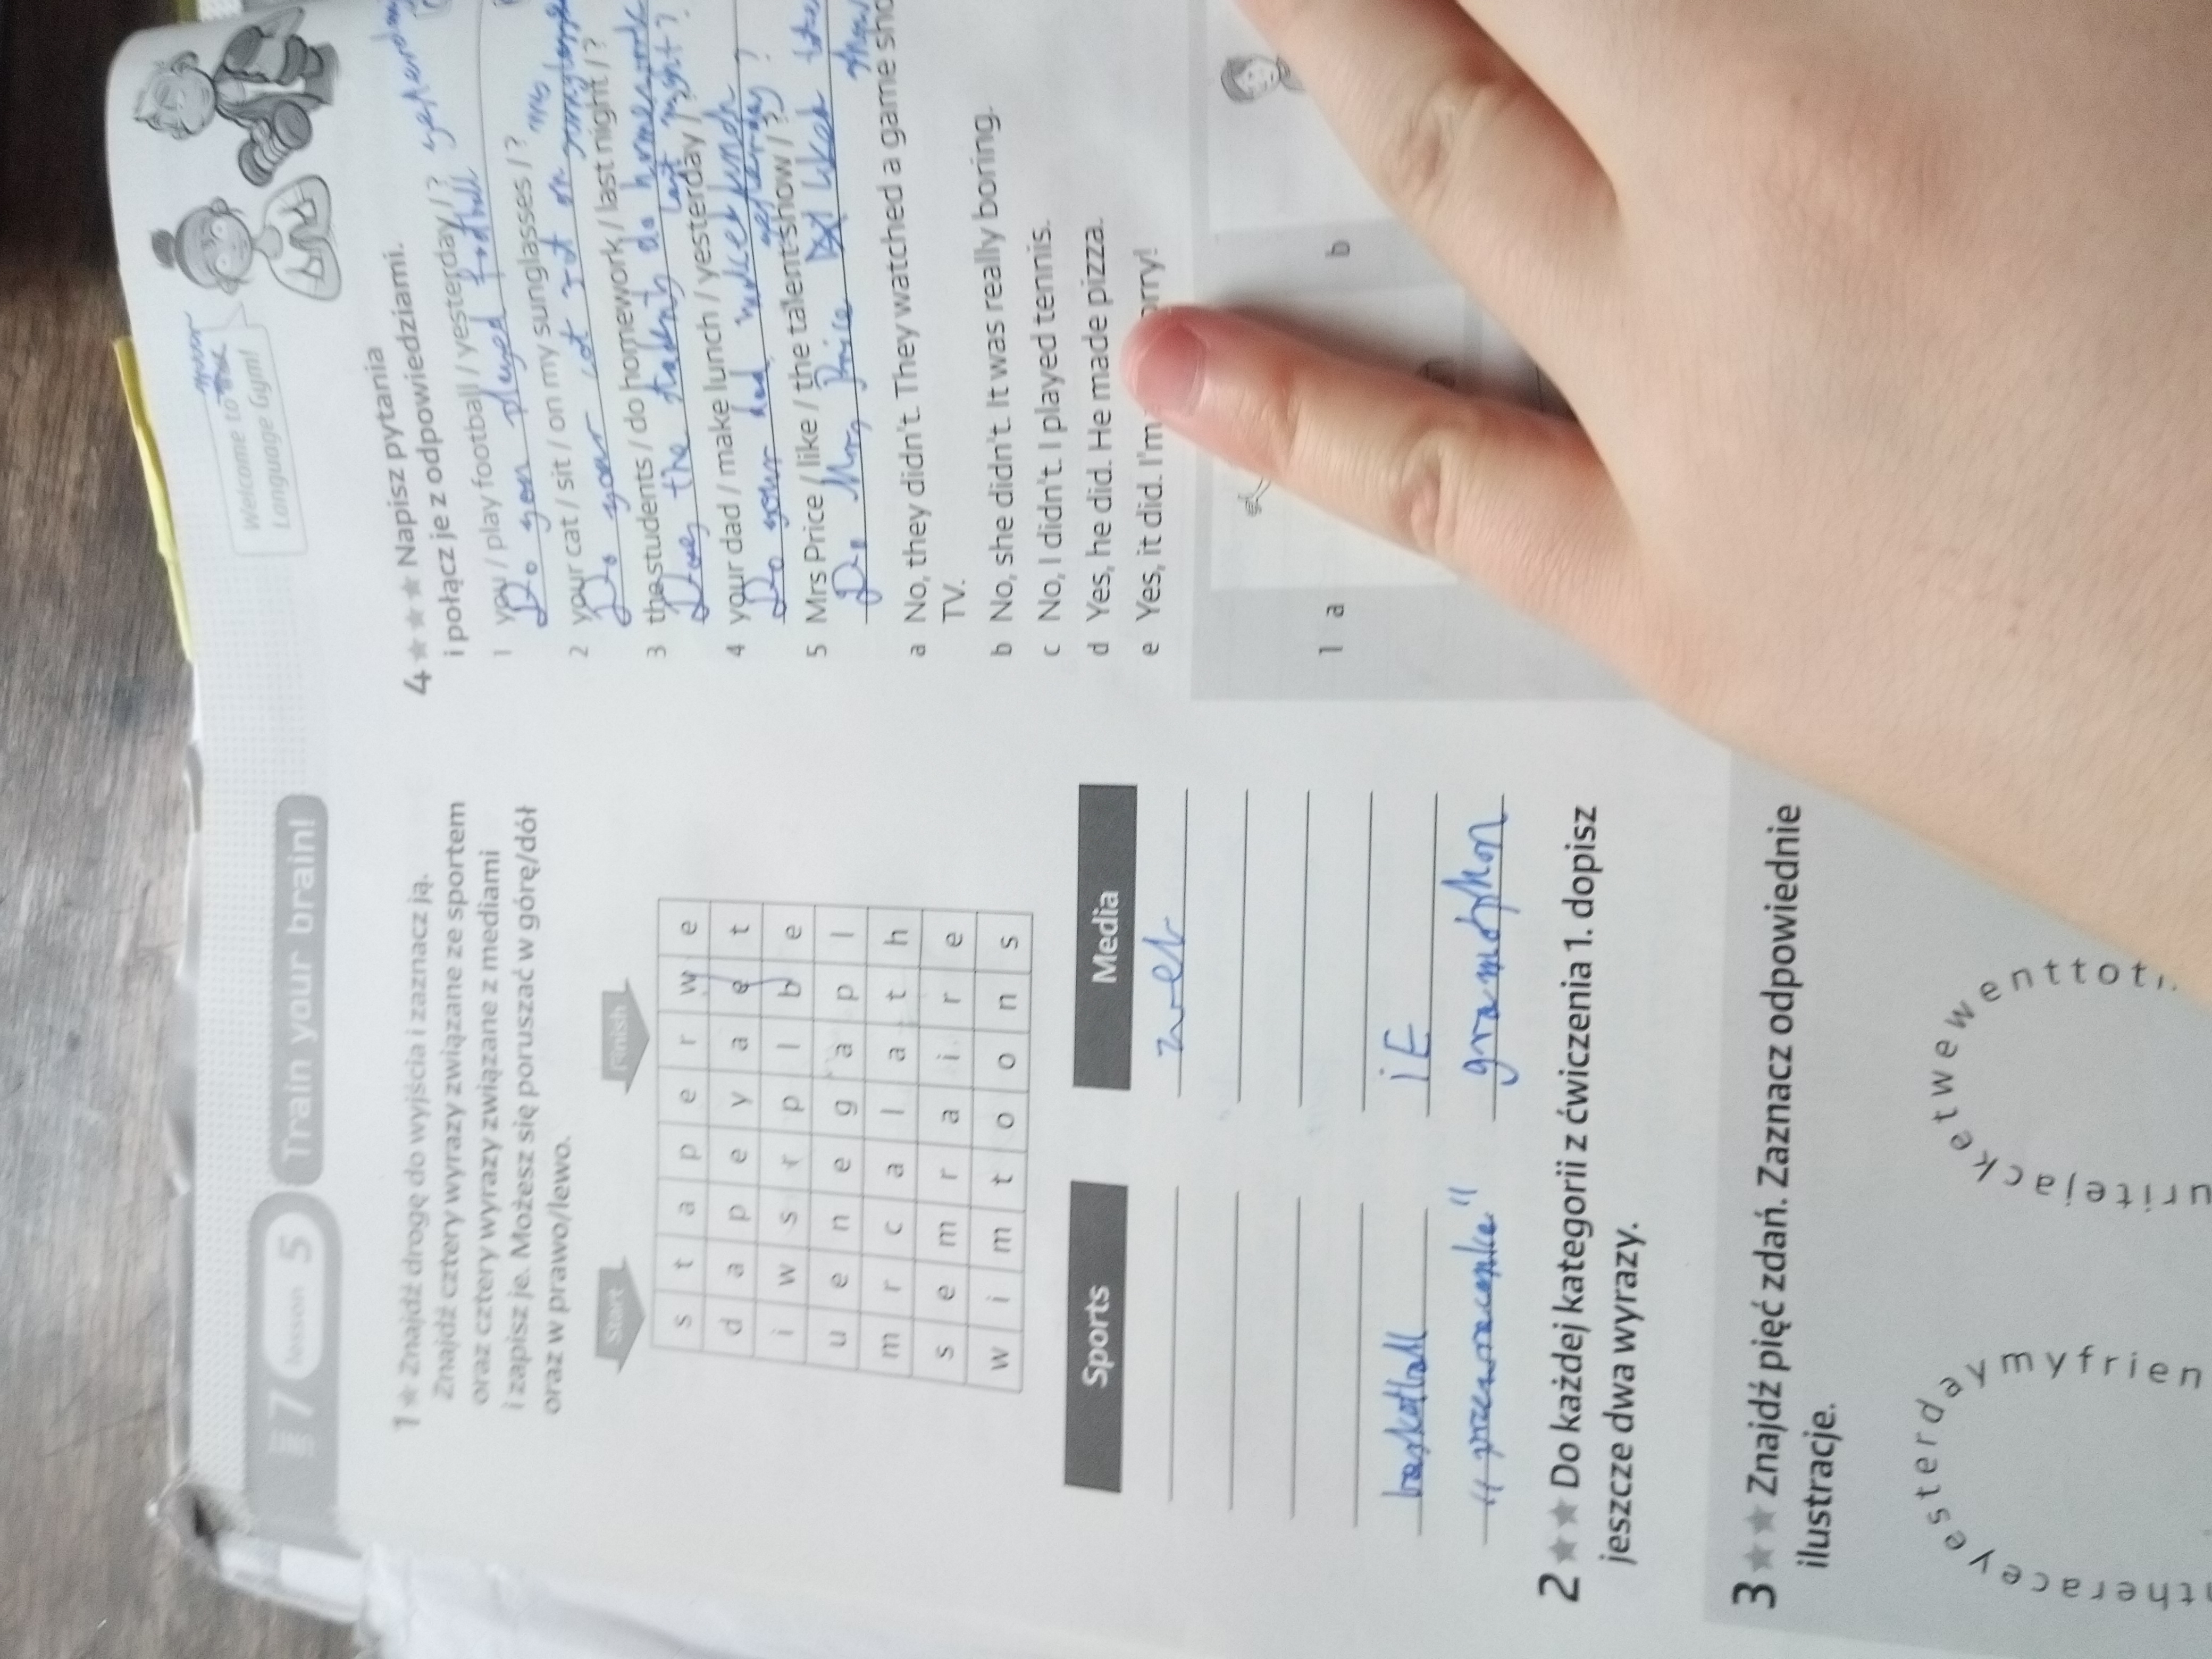 7 lesson 5 Train your brain!
1 ★ Znajdź drogę do wyjścia i zaznacz ją.
Znajdź cztery wyrazy związane ze sportem
oraz cztery wyrazy związane z mediami
i zapisz je. Możesz się poruszać w górę/dół
oraz w prawo/lewo.
Start Finish
s t a p e r w e
d a p e y a e t
i w s r p l b e
u e n e g a p l
m r c a l a t h
s e m r a i r e
w i m t o o n s
Sports Media
web
basketball iE
gramophon
2 ★★ Do każdej kategorii z ćwiczenia 1. dopisz
jeszcze dwa wyrazy.
3 ★★ Znajdź pięć zdań. Zaznacz odpowiednie
ilustracje.
theraceyesterdaymyfrien
uritejacketwewenttoth
Welcome to
Language Gym!
4 ★★★ Napisz pytania
i połącz je z odpowiedziami.
1 you / play football / yesterday / ? yesterday
Do you played football
2 your cat / sit / on my sunglasses / ? my
Do your cat sit on
3 the students / do homework / last night / ?
Does the students do homework
last night?
4 your dad / make lunch / yesterday / ?
Do your dad
yesterday ?
5 Mrs Price / like / the talent show / ?
Do Mrs Price liked the
show
a No, they didn't. They watched a game sho
TV.
b No, she didn't. It was really boring.
c No, I didn't. I played tennis.
d Yes, he did. He made pizza.
e Yes, it did. I'm orry!
1 a b